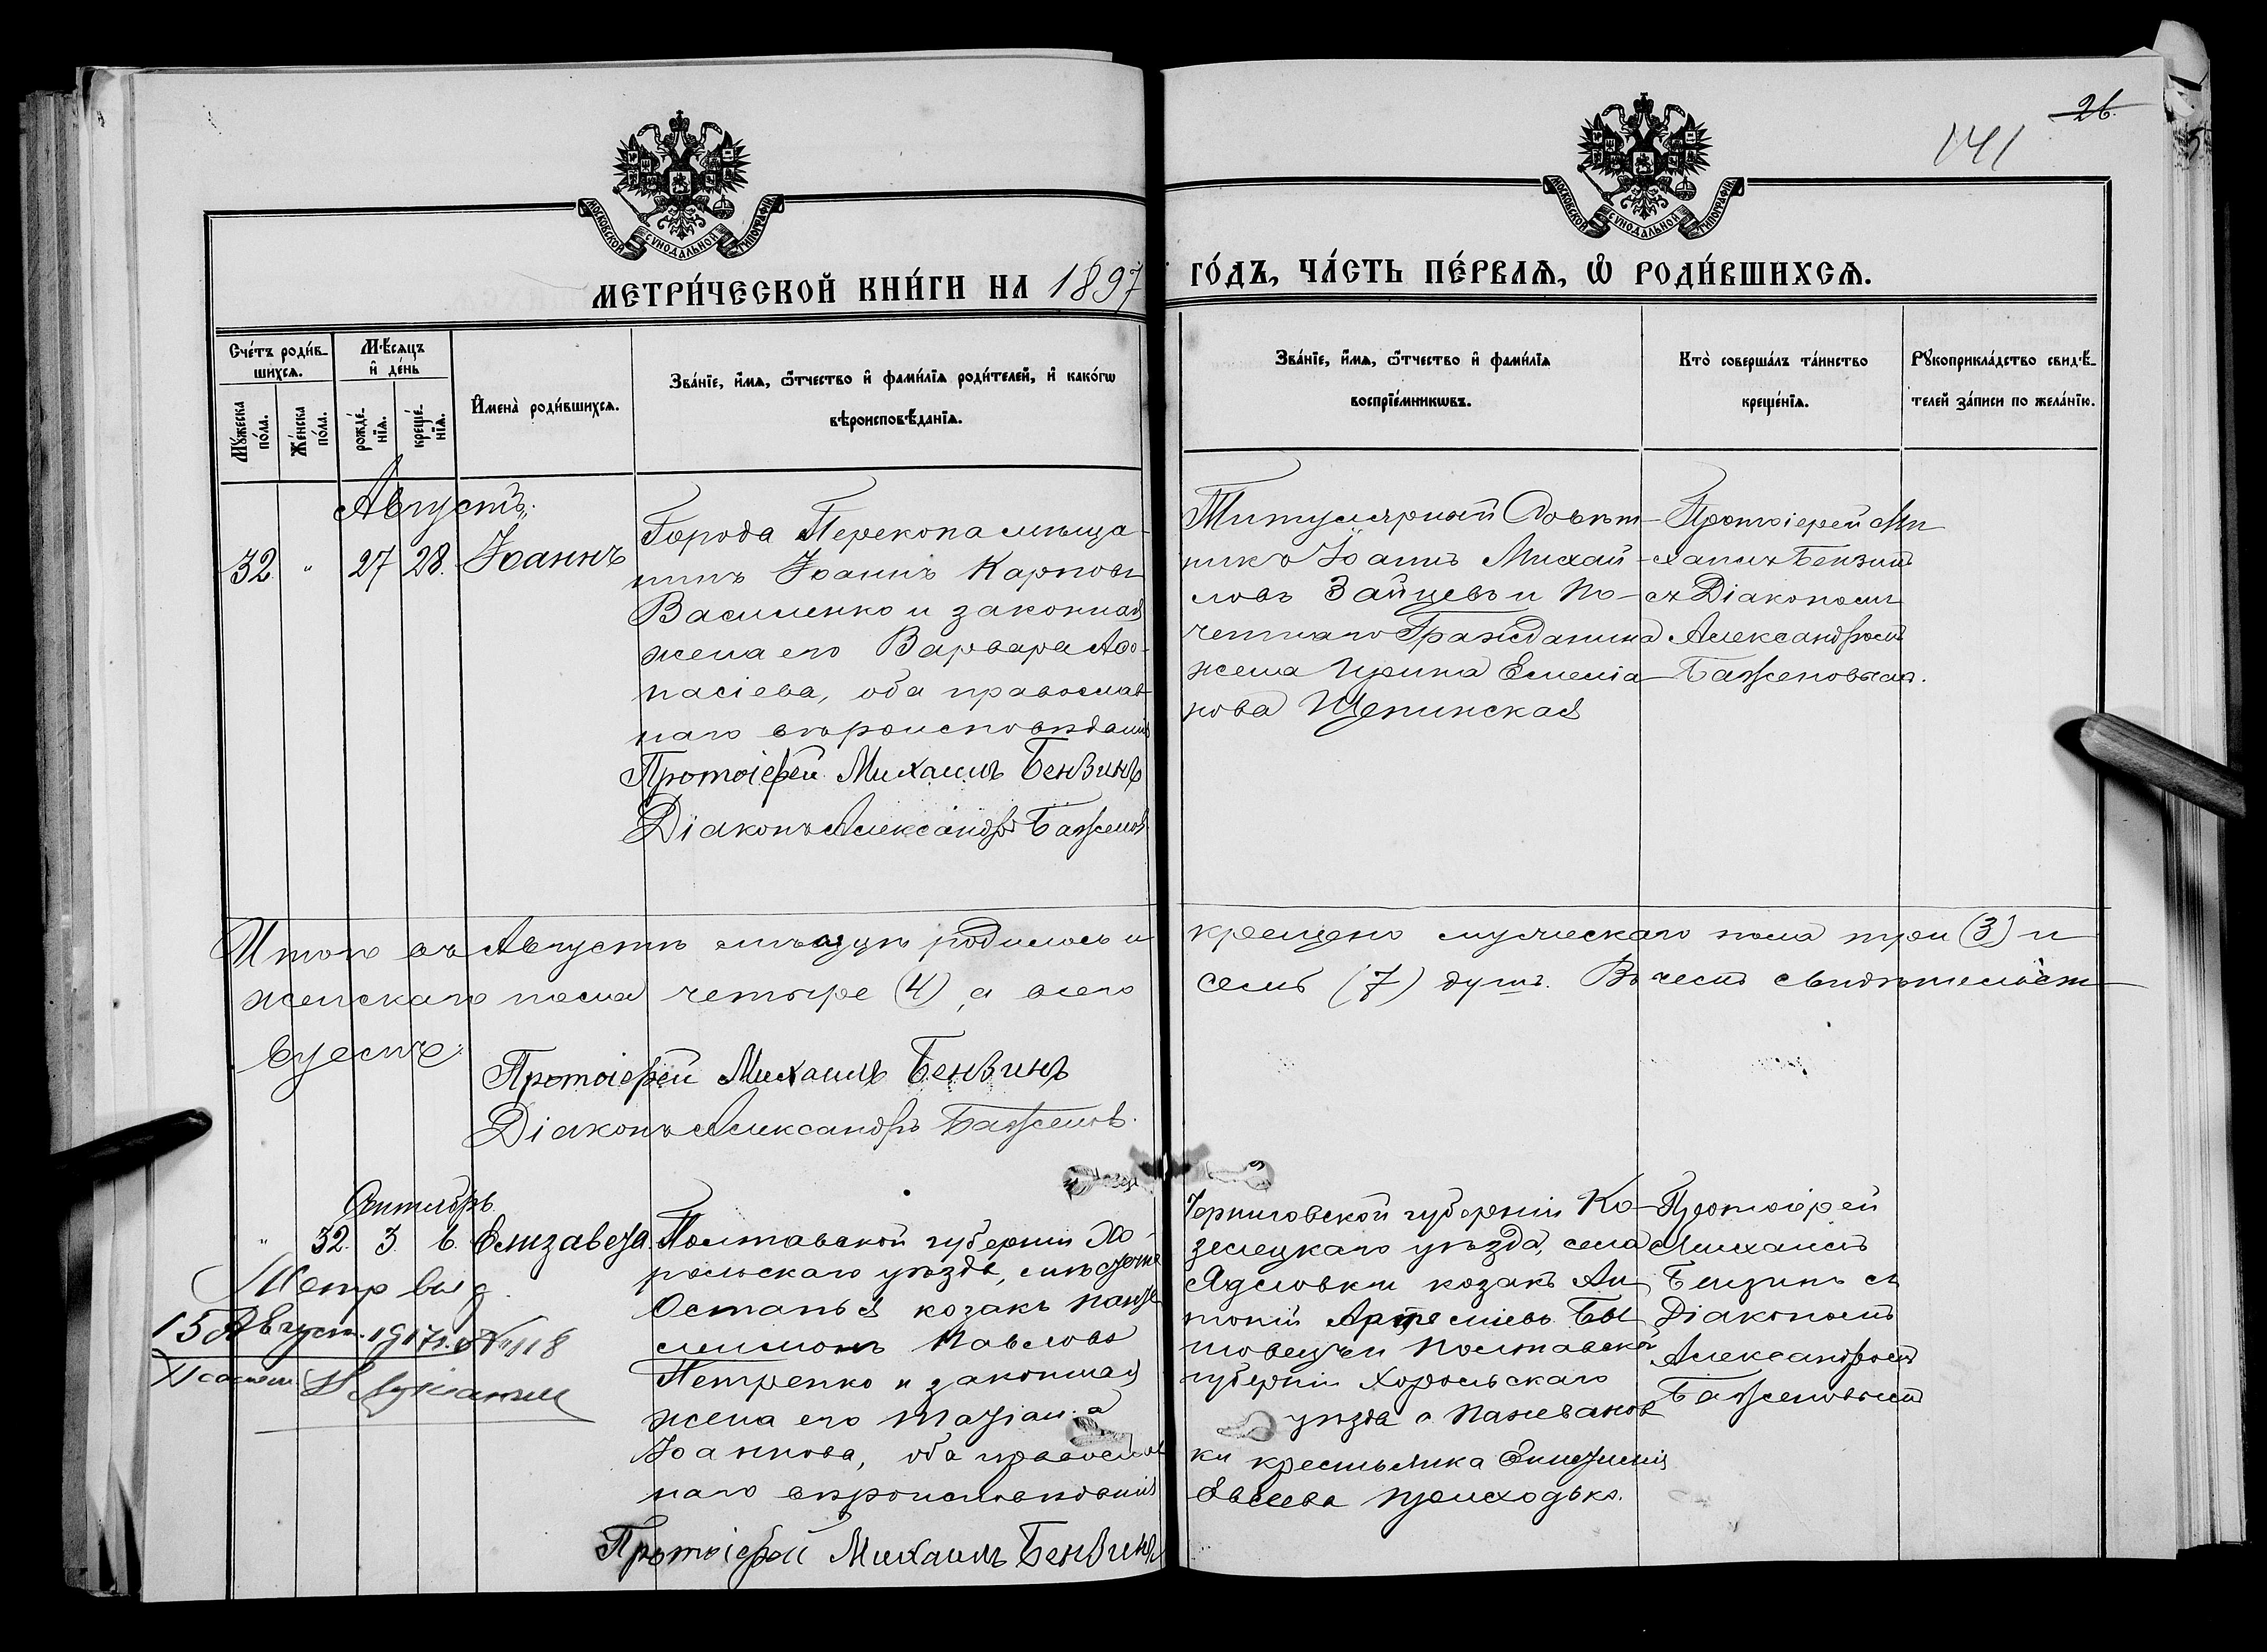 26.
141
МОСКОВСКОЙ СѴНОДАЛЬНОЙ ТИПОГРАФІИ
МОСКОВСКОЙ СѴНОДАЛЬНОЙ ТИПОГРАФІИ
МЕТРИ́ЧЕСКОЙ КНИ́ГИ НА 1897 ГО́ДЪ, ЧА́СТЬ ПЕ́РВАѦ, Ѿ РОДИ́ВШИХСѦ.
Сче́тъ роди́в-
шихсѧ.
Мꙋ́жеска по́ла.
Же́нска по́ла.
Мѣ́сѧцъ
и҆ де́нь
рожде́-нїѧ.
креще́-нїѧ.
И҆мена̀ роди́вшихсѧ.
Зва́нїе, и҆́мѧ, ѻ҆́тчество и҆ фами́лїѧ роди́телей, и҆ како́гѡ
вѣроисповѣ́данїѧ.
Зва́нїе, и҆́мѧ, ѻ҆́тчество и҆ фами́лїѧ
воспрїе́мникѡвъ.
Кто̀ соверша́лъ та́инство
креще́нїѧ.
Рꙋкоприкла́дство свидѣ́-
телей за́писи по жела́нїю.
Августъ.
32. " 27 28. Іоаннъ
Города Перекопа мѣща-
нинъ Іоаннъ Карповъ
Василенко и законная
жена его Варвара Аѳа-
насіева, оба православ-
наго вѣроисповѣданія
Протоіерей Михаилъ Бензинъ
Діаконъ Александръ Баженовъ
Титулярный Совѣт-
никъ Іоаннъ Михай-
ловъ Зайцевъ и По-
четнаго Гражданина
жена Ирина Емеліа-
нова Щепинская
Протоіерей Ми-
хаилъ Бензинъ
съ Діакономъ
Александромъ
Баженовымъ.
Итого въ Августѣ мѣсяцѣ родилось и крещено мужескаго пола три (3) и
женскаго пола четыре (4), а всего семь (7) душъ. Въ чемъ свидѣтельст-
вуемъ:
Протоіерей Михаилъ Бензинъ
Діаконъ Александръ Баженовъ.
Сентябрь.
" 32. 3. 6. Елизавета.
Метр выд.
15 Август. 1917 г. № 118
Полтавской губерніи Хо-
рольскаго уѣзда, мѣстечка
Остапья козакъ Панте-
лимонъ Павловъ
Петренко и законная
жена его Татіана
Іоаннова, оба православ
наго вѣроисповѣданія
Протоіерей Михаилъ Бензинъ
Черниговской губерніи Ко-
зелецкаго уѣзда, села
козакъ Ан
тоній Артеміевъ Бы
ковецъ и Полтавской
губерніи Хорольскаго
уѣзда с.
ки крестьянка
Евсеева Приходько.
Протоіерей
Михаилъ
Бензинъ съ
Діакономъ
Александромъ
Баженовымъ